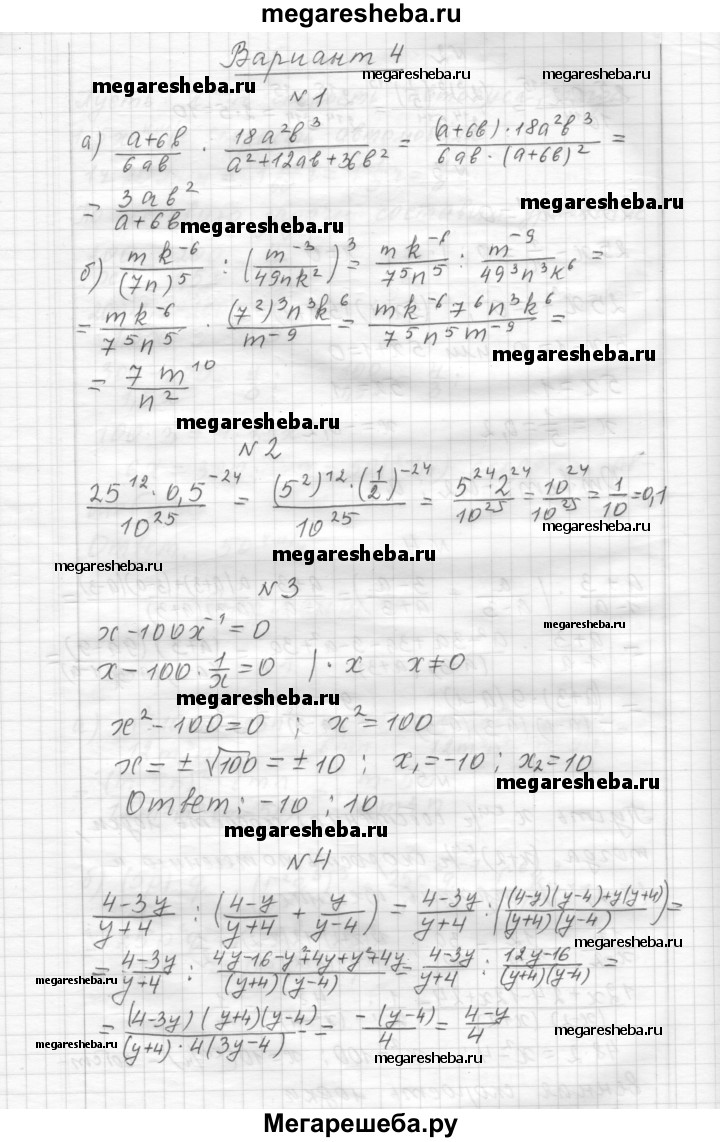 megaresheba.ru
Вариант 4
megaresheba.ru megaresheba.ru megaresheba.ru
№1
а) (a+6b)/(6ab) · (18a²b³)/(a²+12ab+36b²) = ((a+6b)·18a²b³)/(6ab·(a+6b)²) =
= (3ab²)/(a+6b)
megaresheba.ru
megaresheba.ru
б) (mk⁻⁶)/((7n)⁵) : (m⁻³/(49nk²))³ = (mk⁻⁶)/(7⁵n⁵) : (m⁻⁹)/(49³n³k⁶) =
= (mk⁻⁶)/(7⁵n⁵) · ((7²)³n³k⁶)/(m⁻⁹) = (mk⁻⁶7⁶n³k⁶)/(7⁵n⁵m⁻⁹) =
megaresheba.ru
= (7m¹⁰)/(n²)
megaresheba.ru
№2
(25¹²·0,5⁻²⁴)/(10²⁵) = ((5²)¹²·(1/2)⁻²⁴)/(10²⁵) = (5²⁴·2²⁴)/(10²⁵) = 10²⁴/10²⁵ = 1/10 = 0,1
megaresheba.ru
megaresheba.ru
megaresheba.ru
№3
x-100x⁻¹=0
megaresheba.ru
x-100·1/x=0 |·x x≠0
megaresheba.ru
x²-100=0 ; x²=100
x=±√100=±10 ; x₁=-10 ; x₂=10
megaresheba.ru
Ответ: -10 ; 10
megaresheba.ru
№4
(4-3y)/(y+4) : ((4-y)/(y+4) + y/(y-4)) = (4-3y)/(y+4) : (((4-y)(y-4)+y(y+4))/((y+4)(y-4))) =
megaresheba.ru
= (4-3y)/(y+4) : (4y-16-y²+4y+y²+4y)/((y+4)(y-4)) = (4-3y)/(y+4) : (12y-16)/((y+4)(y-4)) =
megaresheba.ru megaresheba.ru megaresheba.ru
= ((4-3y)(y+4)(y-4))/((y+4)·4(3y-4)) = (-(y-4))/4 = (4-y)/4
megaresheba.ru megaresheba.ru megaresheba.ru
Мегарешеба.ру